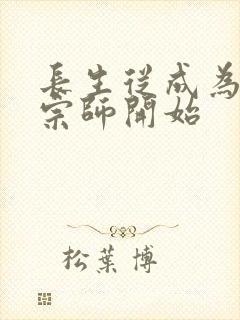 長生從成為
宗師開始
松葉博